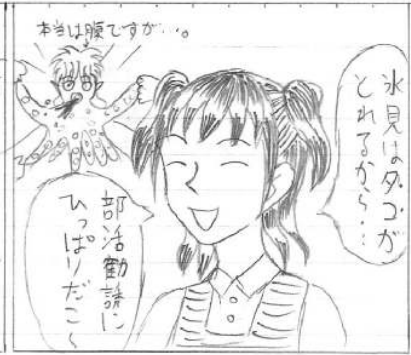 本当は腕ですが…。
氷見はタコが
とれるから…
部活勧誘に
ひっぱりだこ～